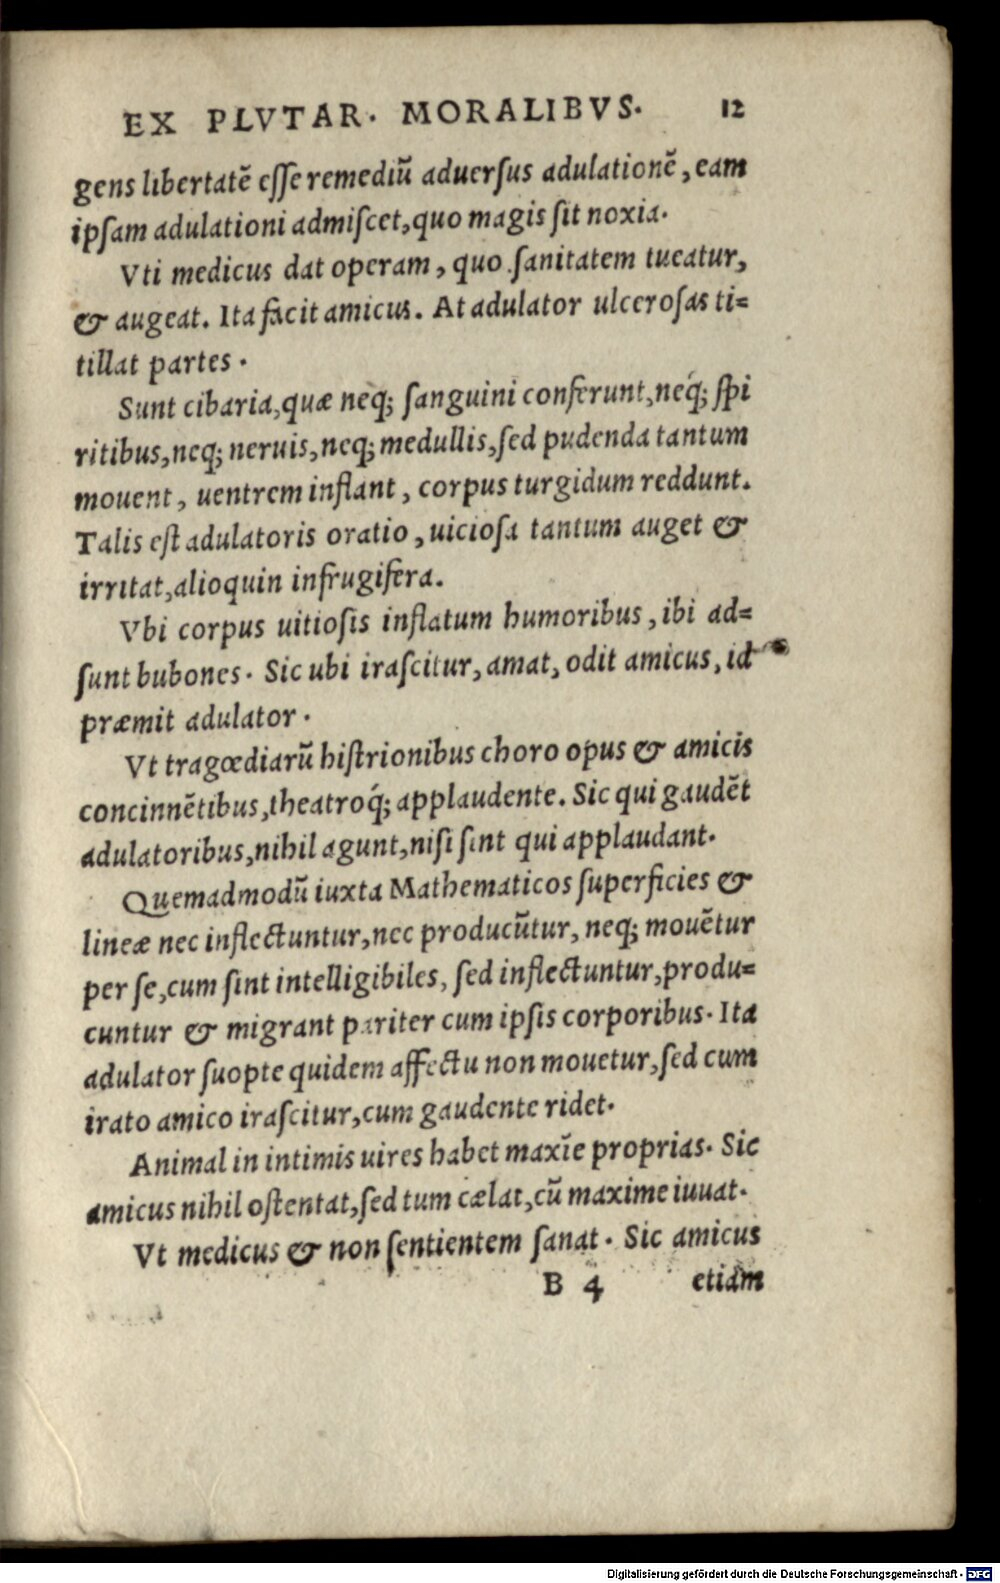 EX PLVTAR. MORALIBVS. 12
gens libertatē eſſe remediū aduerſus adulationē, eam
ipſam adulationi admiſcet, quo magis ſit noxia.
Vti medicus dat operam, quo ſanitatem tueatur,
& augeat. Ita facit amicus. At adulator ulceroſas ti=
tillat partes.
Sunt cibaria, quæ neq; ſanguini conferunt, neq́; ſpi
ritibus, neq; neruis, neq; medullis, ſed pudenda tantum
mouent, uentrem inflant, corpus turgidum reddunt.
Talis eſt adulatoris oratio, uicioſa tantum auget &
irritat, alioquin infrugifera.
Vbi corpus uitioſis inflatum humoribus, ibi ad=
ſunt bubones. Sic ubi iraſcitur, amat, odit amicus, id
præmit adulator.
Vt tragœdiarū hiſtrionibus choro opus & amicis
concinnētibus, theatroq́; applaudente. Sic qui gaudēt
adulatoribus, nihil agunt, niſi ſint qui applaudant.
Quemadmodū iuxta Mathematicos ſuperficies &
lineæ nec inflectuntur, nec producūtur, neq; mouētur
per ſe, cum ſint intelligibiles, ſed inflectuntur, produ=
cuntur & migrant pariter cum ipſis corporibus. Ita
adulator ſuopte quidem affectu non mouetur, ſed cum
irato amico iraſcitur, cum gaudente ridet.
Animal in intimis uires habet maxīe proprias. Sic
amicus nihil oſtentat, ſed tum cælat, cū maxime iuuat.
Vt medicus & non ſentientem ſanat. Sic amicus
B 4 etiam
Digitalisierung gefördert durch die Deutsche Forschungsgemeinschaft - DFG